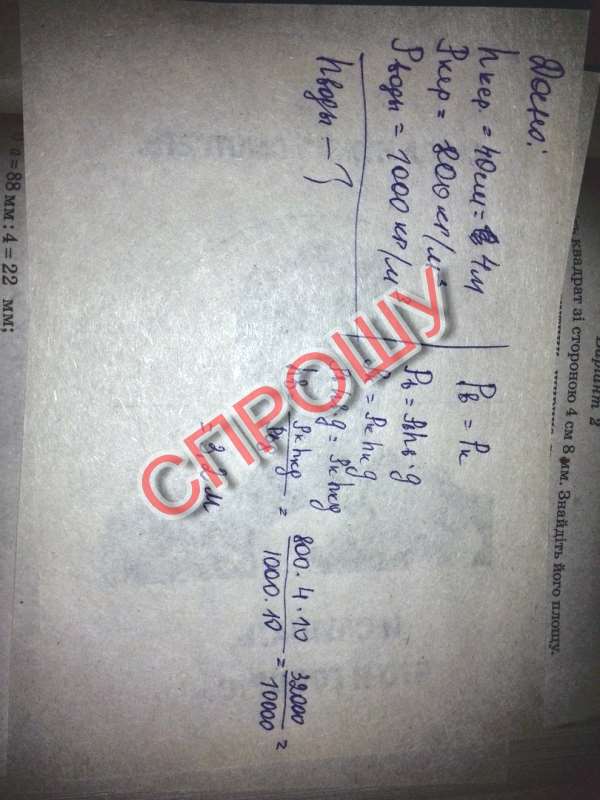 Дано:
hкер. = 40см = 4м
ρкер = 800 кг/м³
ρводы = 1000 кг/м³
hводы – ?
Pв = Pк
Pв = ρвhв·g
Pк = ρкhкg
ρвhв·g = ρкhкg
hв = ρкhкg / ρвg = 800·4·10 / 1000·10 = 32000 / 10000 =
= 3,2 м
СПРОШУ
Варіант 2
квадрат зі стороною 4 см 8 мм. Знайдіть його площу.
a = 88 мм : 4 = 22 мм;